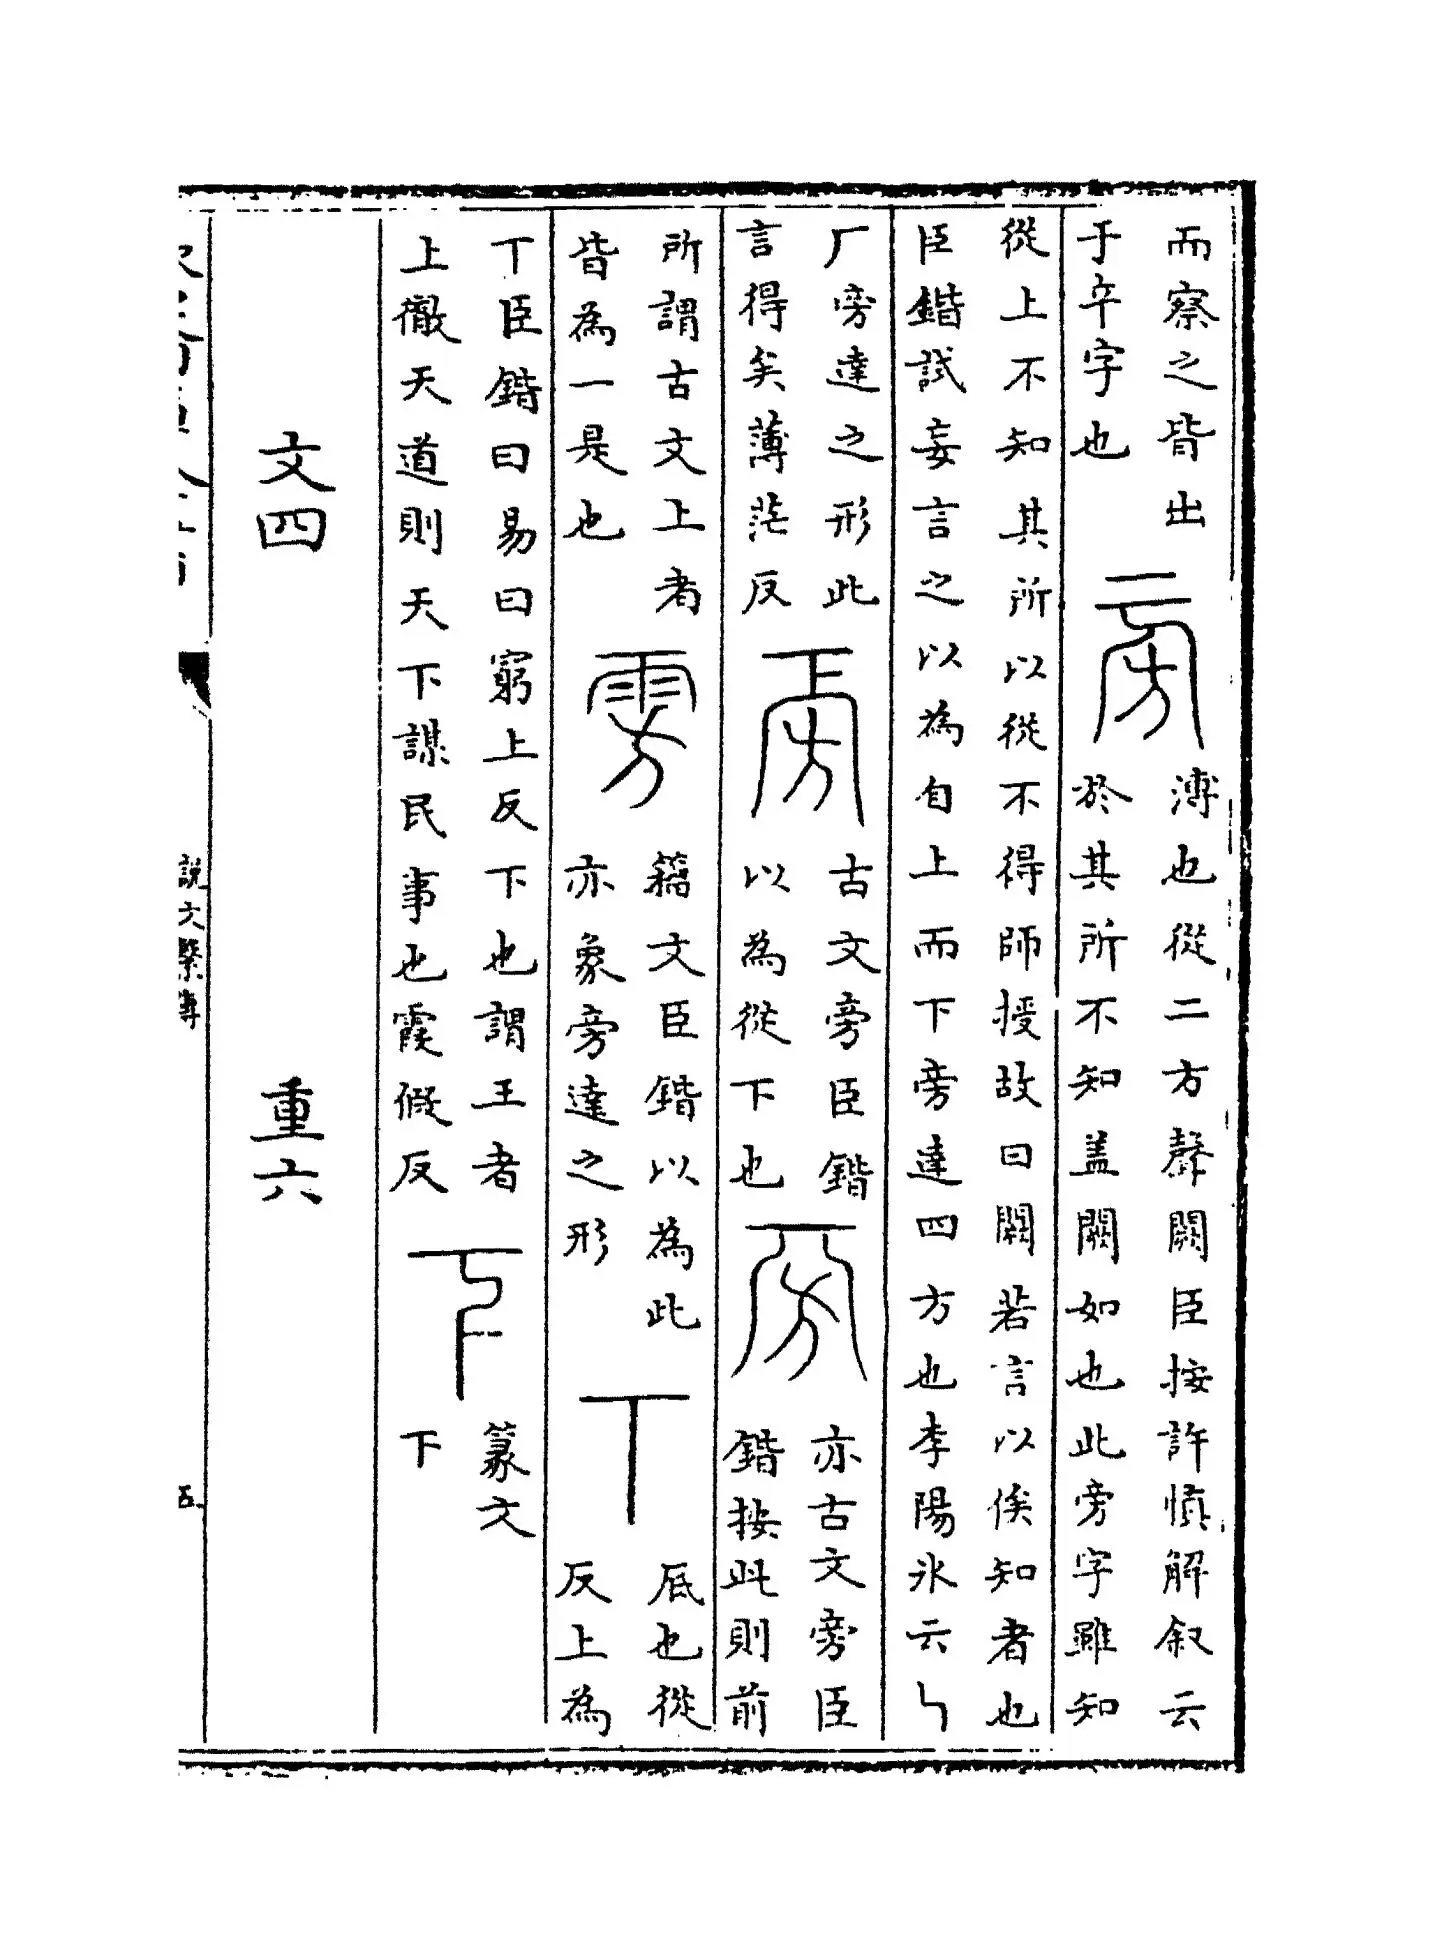 而察之皆出
于辛字也
旁
溥也從二方聲闕臣按許慎解叙云
於其所不知蓋闕如也此旁字雖知
從上不知其所以從不得師授故曰闕若言以俟知者也
臣鍇試妄言之以為自上而下旁達四方也李陽氷云𠃑
厂旁達之形此
言得矣薄茫反
古文旁臣鍇
以為從下也
亦古文旁臣
鍇按此則前
所謂古文上者
皆為一是也
雱
籒文臣鍇以為此
亦象旁達之形
丅
厎也從
反上為
丅臣鍇曰易曰窮上反下也謂王者
上徹天道則天下謀民事也霞假反
下
篆文
下
文四　重六
說文繫傳
五